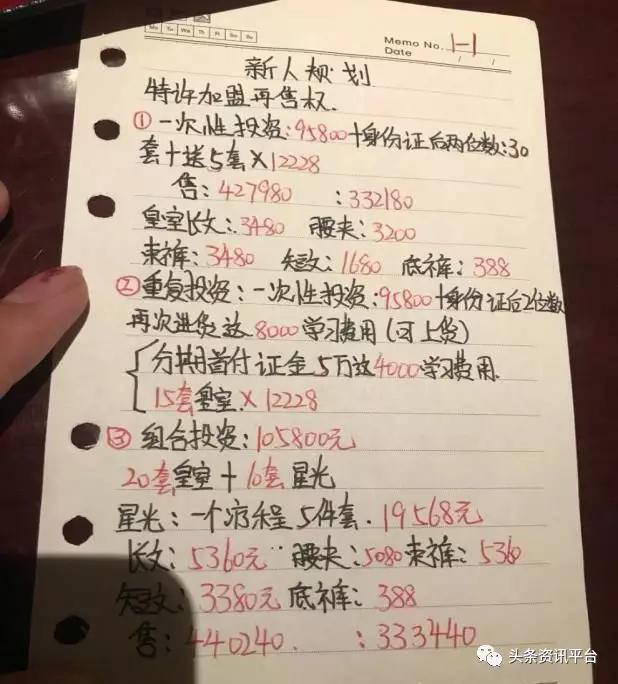 Mo Tu We Th Fr Sa Su
Memo No. 1-1
Date / /
新人规划
特许加盟再售权.
①一次性投资:95800+身份证后两位数:30
套+送5套×12228
售:427980 :332180
皇室长文:3480 腰夹:3200
束裤:3480 短文:1680 底裤:388
②重复投资:一次性投资:95800+身份证后2位数
再次进货送8000学习费用(可上货)
分期首付证金5万送4000学习费用.
15套皇室×12228
③组合投资:105800元
20套皇室+10套星光
星光:一个疗程5件套.19568元
长文:5360元 腰夹:5080束裤:5360
短文:3380元底裤:388
售:440240. :333440
头条资讯平台